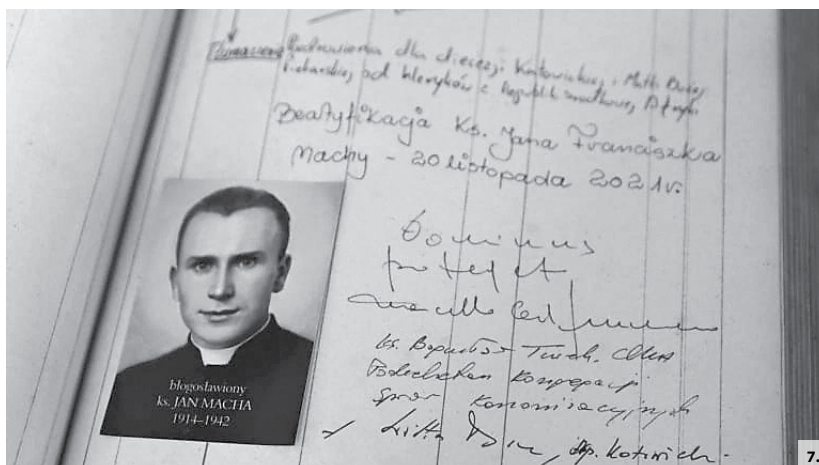 Tłumaczenie Pozdrowienia dla diecezji Katowickiej i Matki Bożej
Piekarskiej od kleryków z Republiki Środkowej Afryki
Beatyfikacja Ks. Jana Franciszka
Machy - 20 listopada 2021r.
Dominus
protegat
Marcello Card.
ks. Bogusław Turek, CSMA
Podsekretarz Kongregacji
Spraw Kanonizacyjnych
+ bp, Katowick.
błogosławiony
ks. JAN MACHA
1914–1942
7.